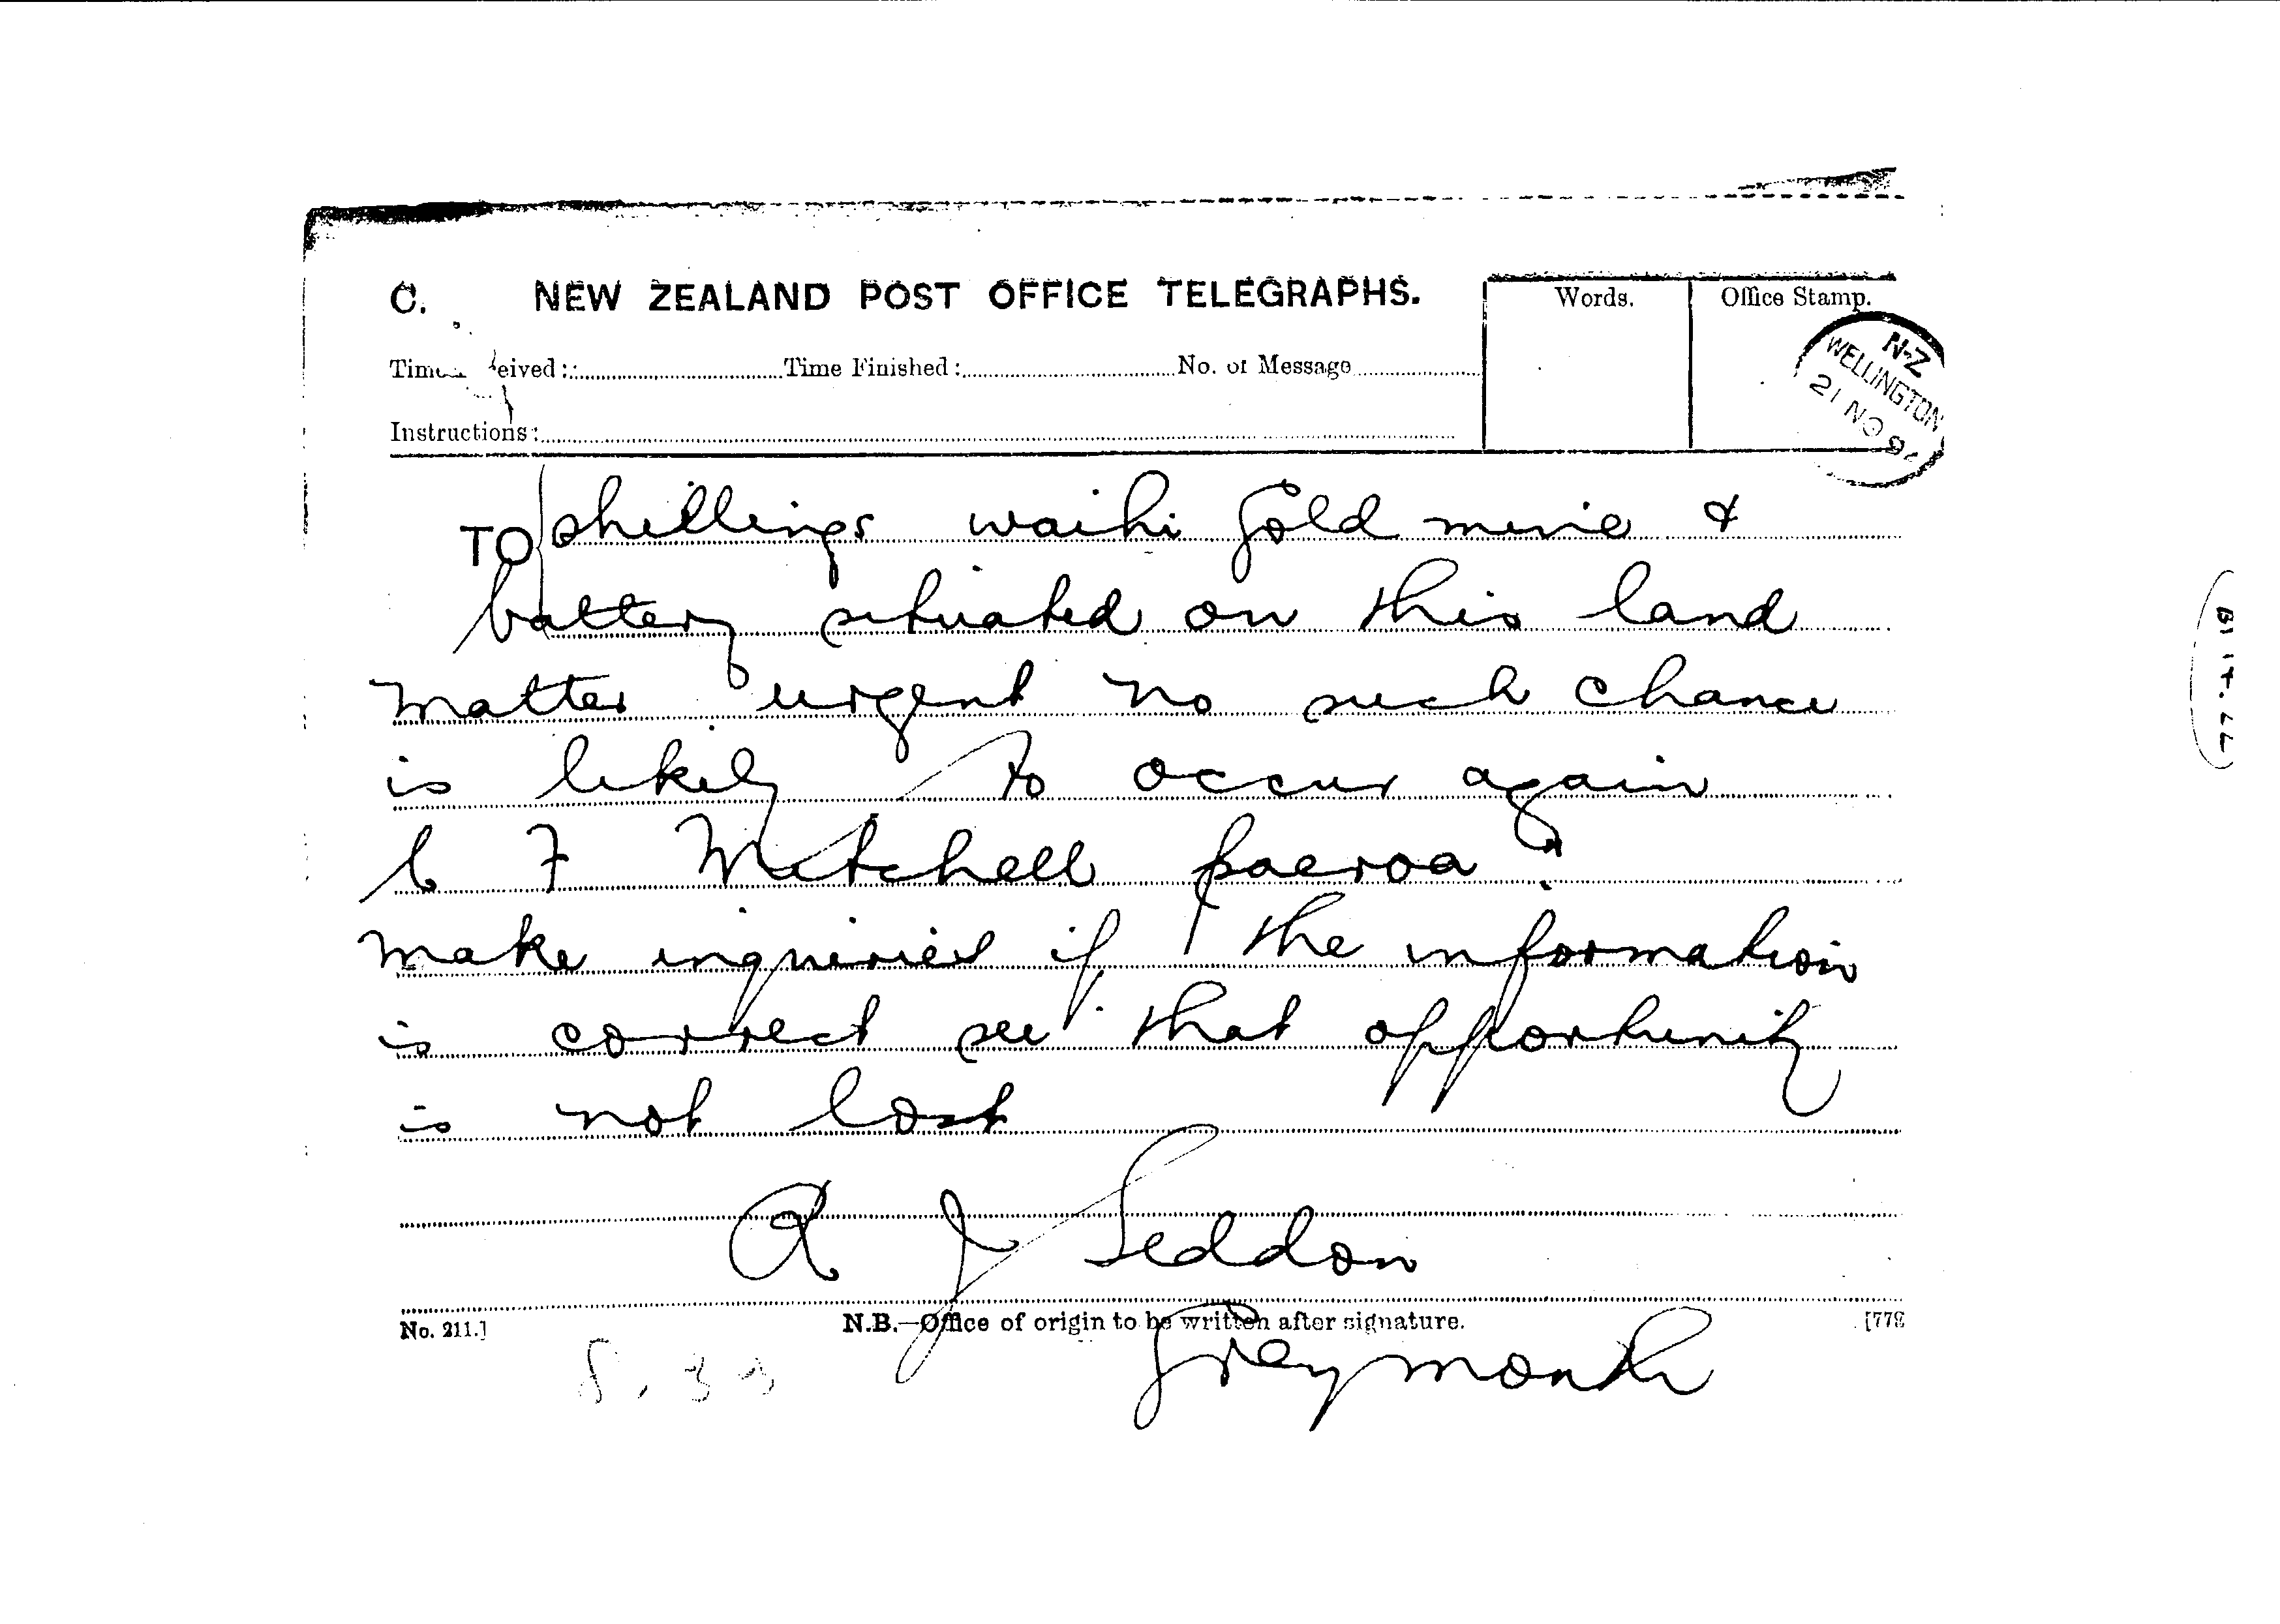 C. NEW ZEALAND POST OFFICE TELEGRAPHS.
Words.
Office Stamp.
N·Z
WELLINGTON
21 NO 92
eived: Time Finished: No. of Message
Instructions:
TO shillings waihi Gold mine &
battery situated on this land
matter urgent no such chance
is likely to occur again
C F Mitchell paeroa"
make inquiries if the information
is correct see that opportunity
is not lost
R J Seddon
N.B.—Office of origin to be written after signature.
No. 211.]
Greymouth
8.33